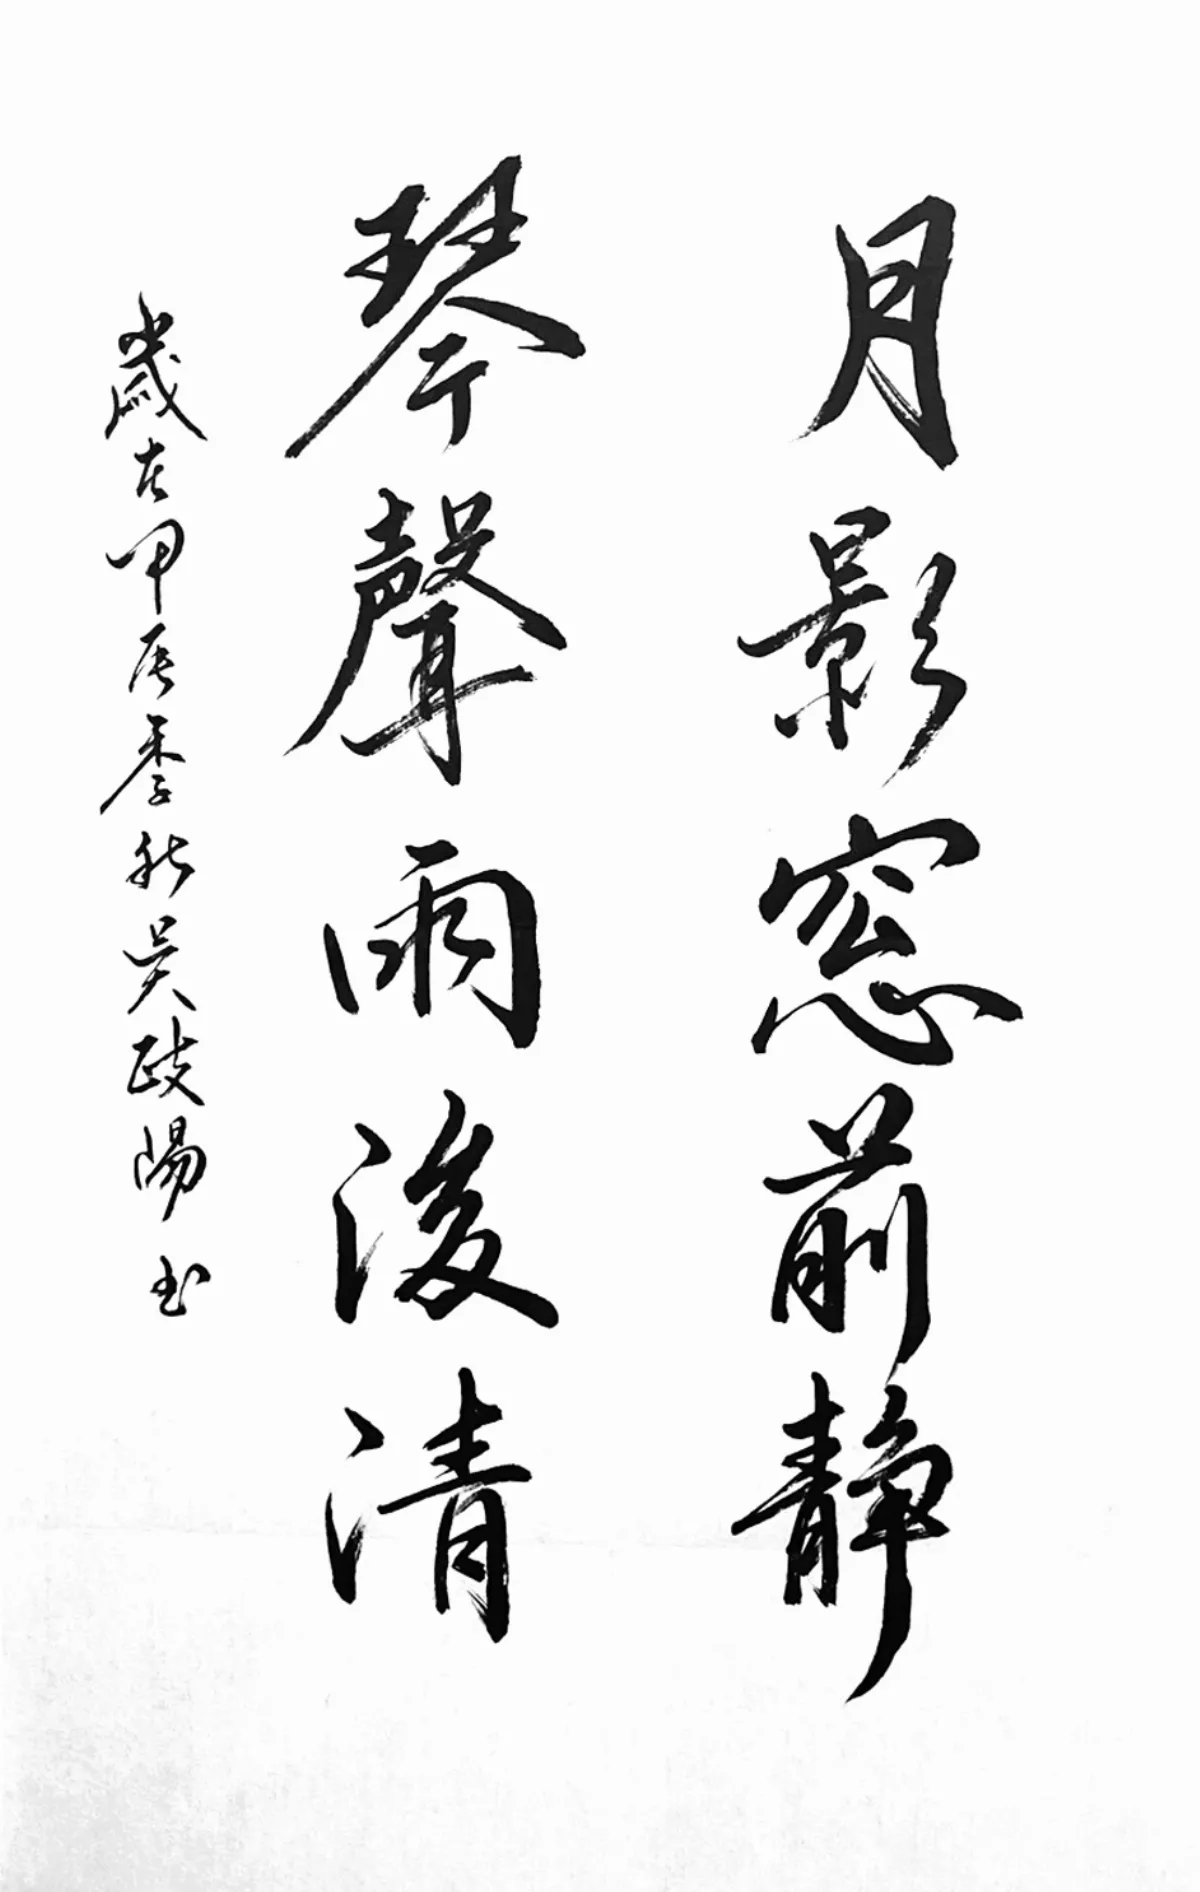 月影窓前静
琴聲雨後清
歲在甲辰季秋吴政陽书